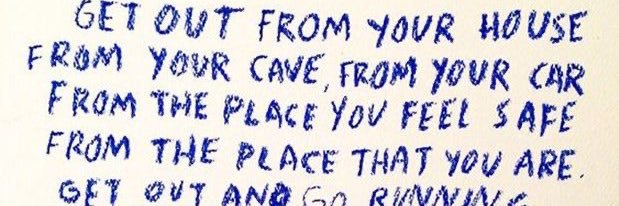 GET OUT FROM YOUR HOUSE
FROM YOUR CAVE, FROM YOUR CAR
FROM THE PLACE YOU FEEL SAFE
FROM THE PLACE THAT YOU ARE.
GET OUT AND GO RUNNING